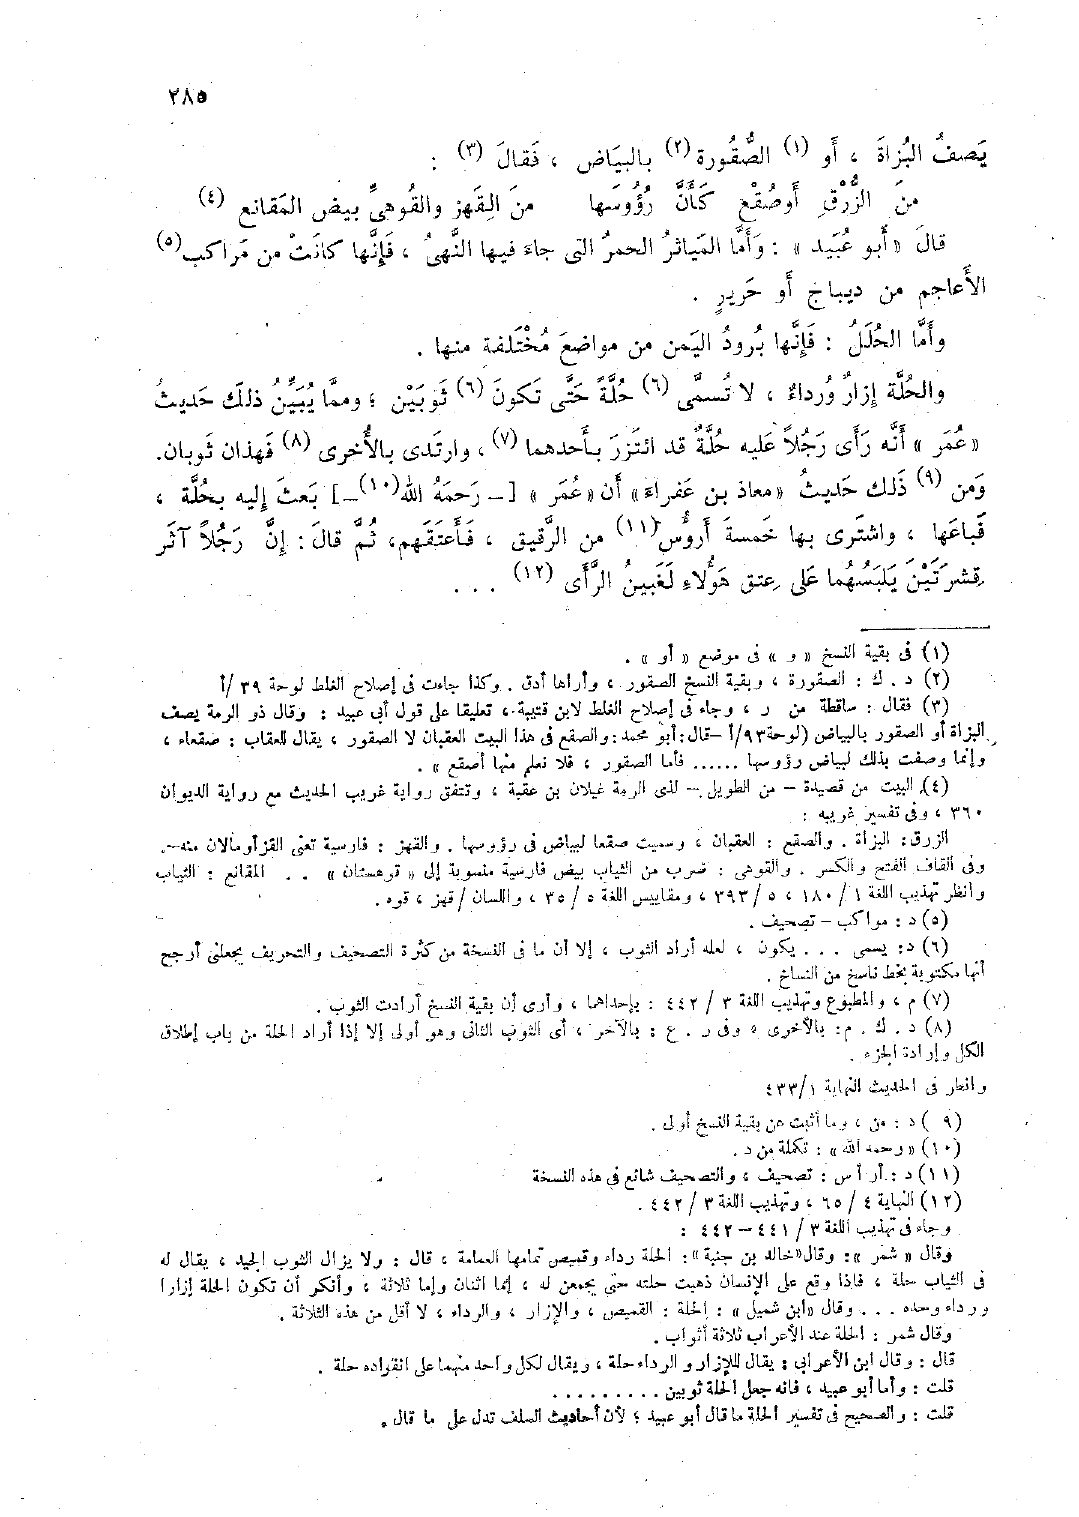 ٢٨٥
يَصفُ البُزاةَ ، أَو (١) الصُّقُورة (٢) بالبيَاض ، فَقالَ (٣) :
منَ الزُّرْقِ أَوصُقْع كَأَنَّ رُؤُوسَها منَ القَهز والقُوهيِّ بيض المَقانع (٤)
قالَ « أَبو عُبَيد » : وَأَمَّا المَياثرُ الحمرُ التى جاءَ فيها النَّهىُ ، فَإِنَّها كانَتْ من مَراكب (٥)
الأَعاجم من ديباج أَو حَريرٍ .
وأَمَّا الحُلَلُ : فَإِنَّها بُرودُ اليَمن من مواضعَ مُخْتَلفة منها .
والحُلَّة إزارٌ وُرداءٌ ، لا تُسمَّى (٦) حُلَّةً حَتَّى تَكونَ (٦) ثَوبَيْن ؛ وممَّا يُبَيِّنُ ذلكَ حَديثُ
« عُمَر » أَنَّه رَأَى رَجُلاً عَليه حُلَّةٌ قد ائتَزرَ بأَحدهما (٧) ، وارتَدى بالأُخرى (٨) فَهذان ثَوبان.
وَمن (٩) ذَلك حَديثُ « معاذ بن عَفراءَ » أَن « عُمَر » [ – رَحمَهُ الله (١٠) – ] بَعثَ إليه بحُلَّة ،
فَباعَها ، واشتَرى بها خَمسةَ أَروُّس (١١) من الرَّقيق ، فَأَعتَقَهم، ثُمَّ قالَ : إنَّ رَجُلاً آثَر
قِشرَتَيْن يَلبَسُهُما عَلى عِتق هَؤُلاءِ لَغَبينُ الرَّأى (١٢) . . .
(١) فى بقية النسخ « و » فى موضع « أو » .
(٢) د . ك : الصقورة ، وبقية النسخ الصقور ، وأراها أدق . وكذا جاءت فى إصلاح الغلط لوحة ٣٩ /أ
(٣) فقال : ساقطة من ر ، وجاء فى إصلاح الغلط لابن قتيبة ، تعليقا على قول أبى عبيد : وقال ذو الرمة يصف
البزاة أو الصقور بالبياض (لوحة ٩٣/أ – قال : أبو محمد : والصقع فى هذا البيت العقبان لا الصقور ، يقال للعقاب : صقعاء ،
وإنما وصفت بذلك لبياض رؤوسها ...... فأما الصقور ، فلا نعلم منها أصقع » .
(٤) البيت من قصيدة – من الطويل – لذى الرمة غيلان بن عقبة ، وتتفق رواية غريب الحديث مع رواية الديوان
٣٦٠ ، وفى تفسير غريبه :
الزرق : البزاة . والصقع : العقبان ، وسميت صقعا لبياض فى رؤوسها . والقهز : فارسية تعنى القز أو مالان منه –.
وفى القاف الفتح والكسر . والقوهى : ضرب من الثياب بيض فارسية منسوبة إلى « قوهستان » . . المقانع : الثياب
وانظر تهذيب اللغة ١ / ١٨٠ ، ٥ / ٣٩٣ ، ومقاييس اللغة ٥ / ٣٥ ، واللسان / قهز ، قوه .
(٥) د : مواكب – تصحيف .
(٦) د : يسمى . . . يكون ، لعله أراد الثوب ، إلا أن ما فى النسخة من كثرة التصحيف والتحريف يجعلنى أرجح
أنها مكتوبة بخط ناسخ من النساخ .
(٧) م ، والمطبوع وتهذيب اللغة ٣ / ٤٤٢ : بإحداهما ، وأرى أن بقية النسخ أرادت الثوب .
(٨) د . ك . م : بالأخرى » وفى ر . ع : بالآخر ، أى الثوب الثانى وهو أولى إلا إذا أراد الحلة من باب إطلاق
الكل وإرادة الجزء .
وانظر فى الحديث النهاية ٤٣٣/١
(٩ ) د : من ، وما أثبت عن بقية النسخ أولى .
(١٠) « رحمه الله » : تكملة من د .
(١١) د : أرأس : تصحيف ، والتصحيف شائع فى هذه النسخة
(١٢) النهاية ٤ / ٦٥ ، وتهذيب اللغة ٣ / ٤٤٢ .
وجاء فى تهذيب اللغة ٣ / ٤٤١ – ٤٤٢ :
وقال « شمر » : وقال « خالد بن جنبة » : الحلة رداء وقميص تمامها العمامة ، قال : ولا يزال الثوب الجيد ، يقال له
فى الثياب حلة ، فإذا وقع على الإنسان ذهبت حلته حتى يجمعن له ، إما اثنان وإما ثلاثة ، وأنكر أن تكون الحلة إزارا
ورداء وحده . . . وقال « ابن شميل » : الحلة : القميص ، والإزار ، والرداء ، لا أقل من هذه الثلاثة .
وقال شمر : الحلة عند الأعراب ثلاثة أثواب .
قال : وقال ابن الأعرابى : يقال للإزار والرداء حلة ، ويقال لكل واحد منهما على انفراده حلة .
قلت : وأما أبو عبيد ، فإنه جعل الحلة ثوبين . . . . . . . . .
قلت : والصحيح فى تفسير الحلة ما قال أبو عبيد ؛ لأن أحاديث السلف تدل على ما قال .